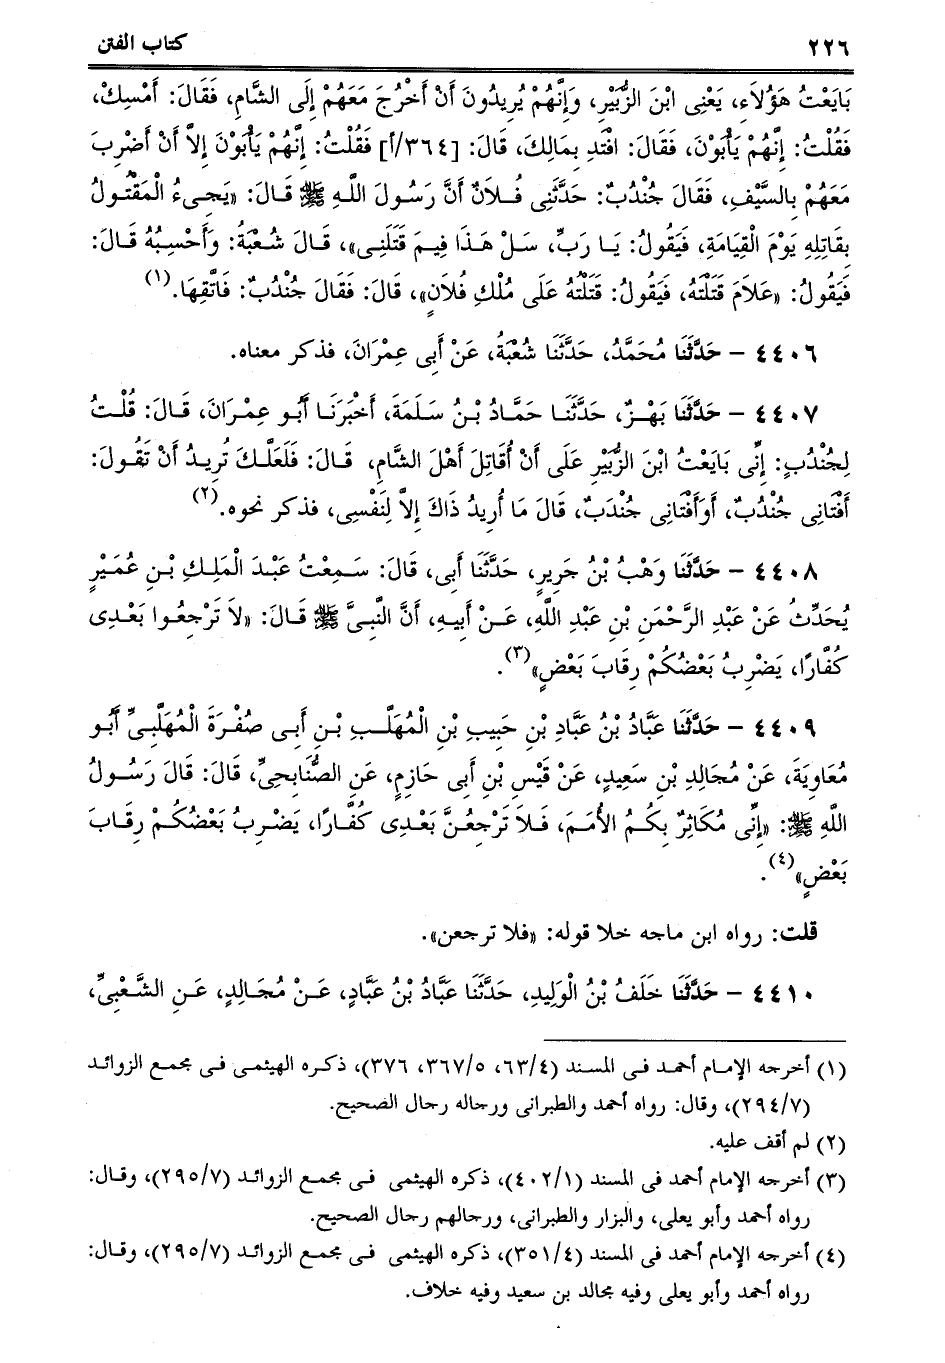 ٢٢٦ كتاب الفتن
بَايَعْتُ هَؤُلاَءِ، يَعْنِى ابْنَ الزُّبَيْرِ، وَإِنَّهُمْ يُرِيدُونَ أَنْ أَخْرُجَ مَعَهُمْ إِلَى الشَّامِ، فَقَالَ: أَمْسِكْ،
فَقُلْتُ: إِنَّهُمْ يَأْبَوْنَ، فَقَالَ: افْتَدِ بِمَالِكَ، قَالَ: [٣٦٤/أ] فَقُلْتُ: إِنَّهُمْ يَأْبَوْنَ إِلاَّ أَنْ أَضْرِبَ
مَعَهُمْ بِالسَّيْفِ، فَقَالَ جُنْدُبٌ: حَدَّثَنِى فُلاَنٌ أَنَّ رَسُولَ اللَّهِ ﷺ قَالَ: «يَجِىءُ الْمَقْتُولُ
بِقَاتِلِهِ يَوْمَ الْقِيَامَةِ، فَيَقُولُ: يَا رَبِّ، سَلْ هَذَا فِيمَ قَتَلَنِى»، قَالَ شُعْبَةُ: وَأَحْسِبُهُ قَالَ:
فَيَقُولُ: «عَلاَمَ قَتَلْتَهُ، فَيَقُولُ: قَتَلْتُهُ عَلَى مُلْكِ فُلاَنٍ»، قَالَ: فَقَالَ جُنْدُبٌ: فَاتَّقِهَا.(١)
٤٤٠٦ - حَدَّثَنَا مُحَمَّدُ، حَدَّثَنَا شُعْبَةُ، عَنْ أَبِى عِمْرَانَ، فذكر معناه.
٤٤٠٧ - حَدَّثَنَا بَهْزٌ، حَدَّثَنَا حَمَّادُ بْنُ سَلَمَةَ، أَخْبَرَنَا أَبُو عِمْرَانَ، قَالَ: قُلْتُ
لِجُنْدُبٍ: إِنِّى بَايَعْتُ ابْنَ الزُّبَيْرِ عَلَى أَنْ أُقَاتِلَ أَهْلَ الشَّامِ، قَالَ: فَلَعَلَّكَ تُرِيدُ أَنْ تَقُولَ:
أَفْتَانِى جُنْدُبٌ، أَوَأَفْتَانِى جُنْدَبٌ، قَالَ مَا أُرِيدُ ذَاكَ إِلاَّ لِنَفْسِى، فذكر نحوه.(٢)
٤٤٠٨ - حَدَّثَنَا وَهْبُ بْنُ جَرِيرٍ، حَدَّثَنَا أَبِى، قَالَ: سَمِعْتُ عَبْدَ الْمَلِكِ بْنِ عُمَيْرٍ
يُحَدِّثُ عَنْ عَبْدِ الرَّحْمَنِ بْنِ عَبْدِ اللَّهِ، عَنْ أَبِيهِ، أَنَّ النَّبِىَّ ﷺ قَالَ: «لاَ تَرْجِعُوا بَعْدِى
كُفَّارًا، يَضْرِبُ بَعْضُكُمْ رِقَابَ بَعْضٍ»(٣).
٤٤٠٩ - حَدَّثَنَا عَبَّادُ بْنُ عَبَّادِ بْنِ حَبِيبِ بْنِ الْمُهَلَّبِ بْنِ أَبِى صُفْرَةَ الْمُهَلَّبِىِّ أَبُو
مُعَاوِيَةَ، عَنْ مُجَالِدِ بْنِ سَعِيدٍ، عَنْ قَيْسِ بْنِ أَبِى حَازِمٍ، عَنِ الصُّنَابِحِىِّ، قَالَ: قَالَ رَسُولُ
اللَّهِ ﷺ: «إِنِّى مُكَاثِرٌ بِكُمُ الأُمَمَ، فَلاَ تَرْجِعُنَّ بَعْدِى كُفَّارًا، يَضْرِبُ بَعْضُكُمْ رِقَابَ
بَعْضٍ»(٤).
قلت: رواه ابن ماجه خلا قوله: «فلا ترجعن».
٤٤١٠ - حَدَّثَنَا خَلَفُ بْنُ الْوَلِيدِ، حَدَّثَنَا عَبَّادُ بْنُ عَبَّادٍ، عَنْ مُجَالِدٍ، عَنِ الشَّعْبِىِّ،
(١) أخرجه الإمام أحمد فى المسند (٦٣/٤، ٣٦٧/٥، ٣٧٦)، ذكره الهيثمى فى مجمع الزوائد
(٢٩٤/٧)، وقال: رواه أحمد والطبرانى ورجاله رجال الصحيح.
(٢) لم أقف عليه.
(٣) أخرجه الإمام أحمد فى المسند (٤٠٢/١)، ذكره الهيثمى فى مجمع الزوائد (٢٩٥/٧)، وقال:
رواه أحمد وأبو يعلى، والبزار والطبرانى، ورجالهم رجال الصحيح.
(٤) أخرجه الإمام أحمد فى المسند (٣٥١/٤)، ذكره الهيثمى فى مجمع الزوائد (٢٩٥/٧)، وقال:
رواه أحمد وأبو يعلى وفيه مجالد بن سعيد وفيه خلاف.